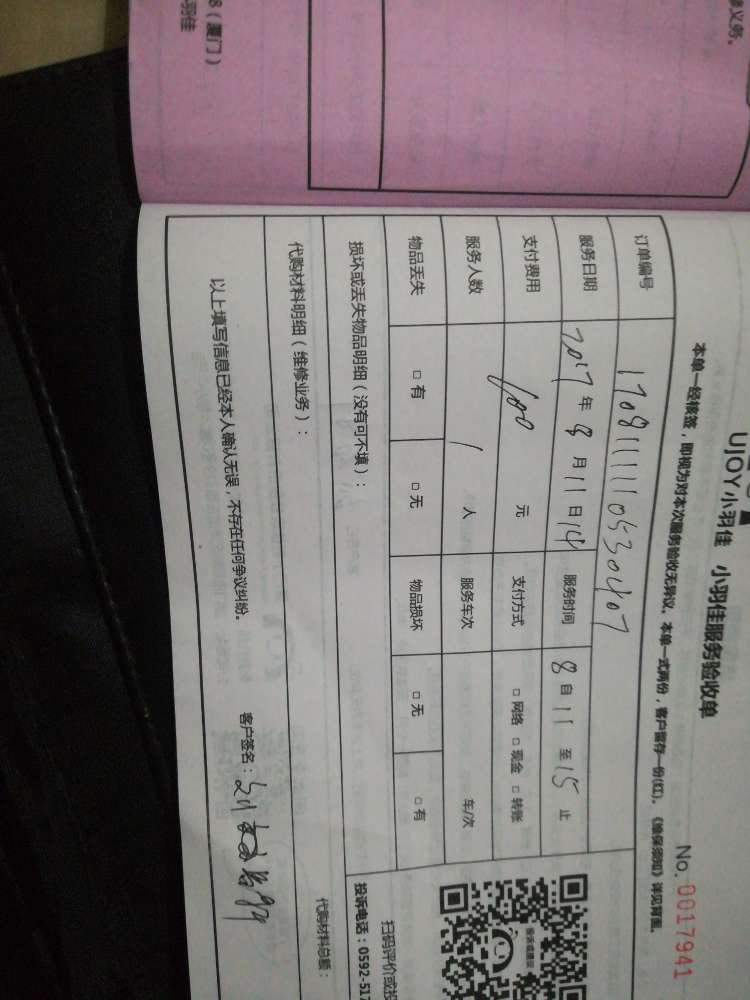 UJOY小羽佳 小羽佳服务验收单
No. 0017941
本单一经核签，即视为对本次服务验收无异议。本单一式两份，客户留存一份(红)。《维保须知》详见背面。
订单编号 170811111105330407
服务日期 2017 年 8 月 11 日 服务时间 自 11 至 15 止
支付费用 元 支付方式 □ 网络 □ 现金 □ 转账
服务人数 1 人 服务车次 车/次
物品丢失 □ 有 □ 无 物品损坏 □ 无 □ 有
损坏或丢失物品明细（没有可不填）：
扫码评价或投
投诉电话：0592-51
代购材料明细（维修业务）：
代购材料总额：
以上填写信息已经本人确认无误，不存在任何争议纠纷。 客户签名：
务。
8（厦门）
羽佳